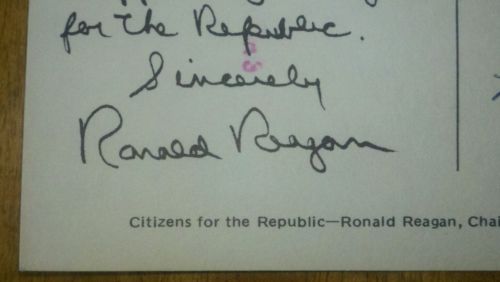 for the Republic.
Sincerely
Ronald Reagan
Citizens for the Republic—Ronald Reagan, Chai